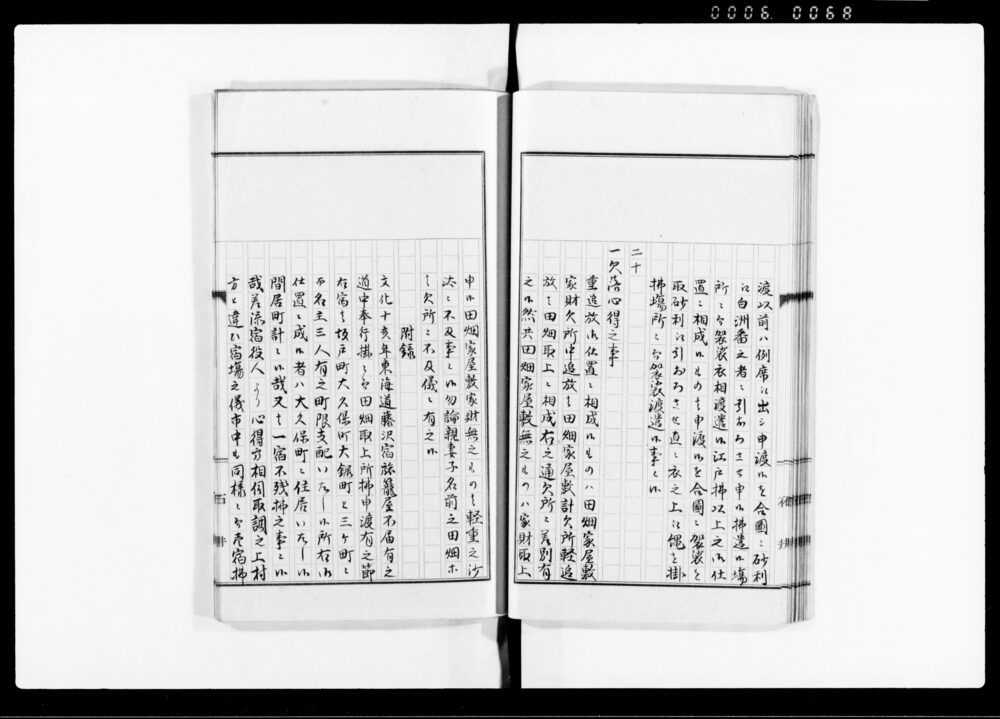 0006 0068
渡以前ハ例席江出シ申渡候を合図ニ砂利
江白洲番之者ニ引おろさせ申候払遣候場
所ニ而袈裟衣相渡遣候江戸払以上之御仕
置ニ相成候もの者申渡候を合図ニ袈裟を
取砂利江引おろさせ直ニ衣之上江縄を掛
払場所ニ而袈裟渡遣候事ニ候
二十
一欠落心得之事
重追放御仕置ニ相成候ものハ田畑家屋敷
家財欠所中追放者田畑家屋敷計欠所軽追
放者田畑取上ニ相成右之通欠所ニ差別有
之候然共田畑家屋敷無之ものハ家財取上
申候田畑家屋敷家財無之もの者軽重之沙
汰ニ不及事ニ候勿論親妻子名前之田畑ホ
者欠所ニ不及儀ニ有之候
附録
文化十亥年東海道藤沢宿旅籠屋不届有之
道中奉行掛ニ而田畑取上所払申渡有之節
右宿者坂戸町大久保町大鋸町と三ケ町ニ
而名主三人有之町限支配いたし候所右御
仕置ニ成候者ハ大久保町ニ住居いたし候
間居町計ニ候哉又者一宿不残払之事ニ候
哉差流宿役人より心得方相伺取調之上村
方と違ひ宿場之儀市中も同様ニ而壱宿払